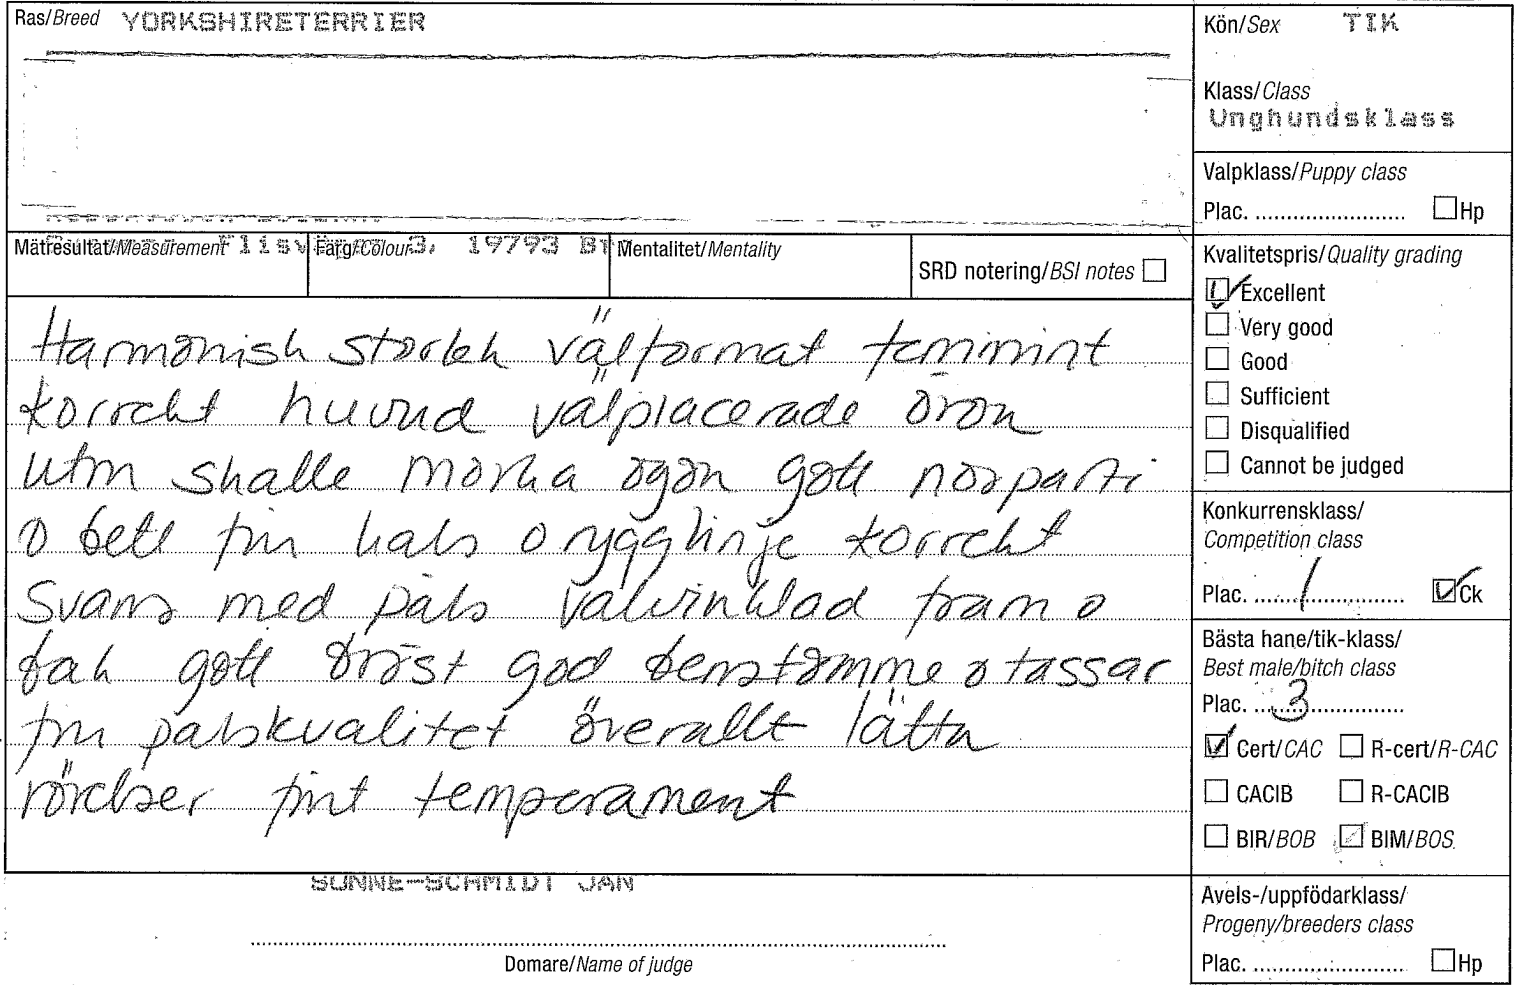 Ras/Breed YORKSHIRETERRIER
Mätresultat/Measurement
Färg/Colour 3, 19793 Br
Mentalitet/Mentality
SRD notering/BSI notes
Harmonisk storlek välformat feminint
korrekt huvud välplacerade öron
utm skalle mörka ögon gott nosparti
o bett fin hals o rygglinje korrekt
svans med päls välvinklad fram o
bak gott bröst god benstomme o tassar
fin pälskvalitet överallt lätta
rörelser fint temperament
SUNNE-SCHMIDT JAN
Domare/Name of judge
Kön/Sex TIK
Klass/Class
Unghundsklass
Valpklass/Puppy class
Plac. Hp
Kvalitetspris/Quality grading
Excellent
Very good
Good
Sufficient
Disqualified
Cannot be judged
Konkurrensklass/
Competition class
Plac. 1 Ck
Bästa hane/tik-klass/
Best male/bitch class
Plac. 3
Cert/CAC R-cert/R-CAC
CACIB R-CACIB
BIR/BOB BIM/BOS
Avels-/uppfödarklass/
Progeny/breeders class
Plac. Hp